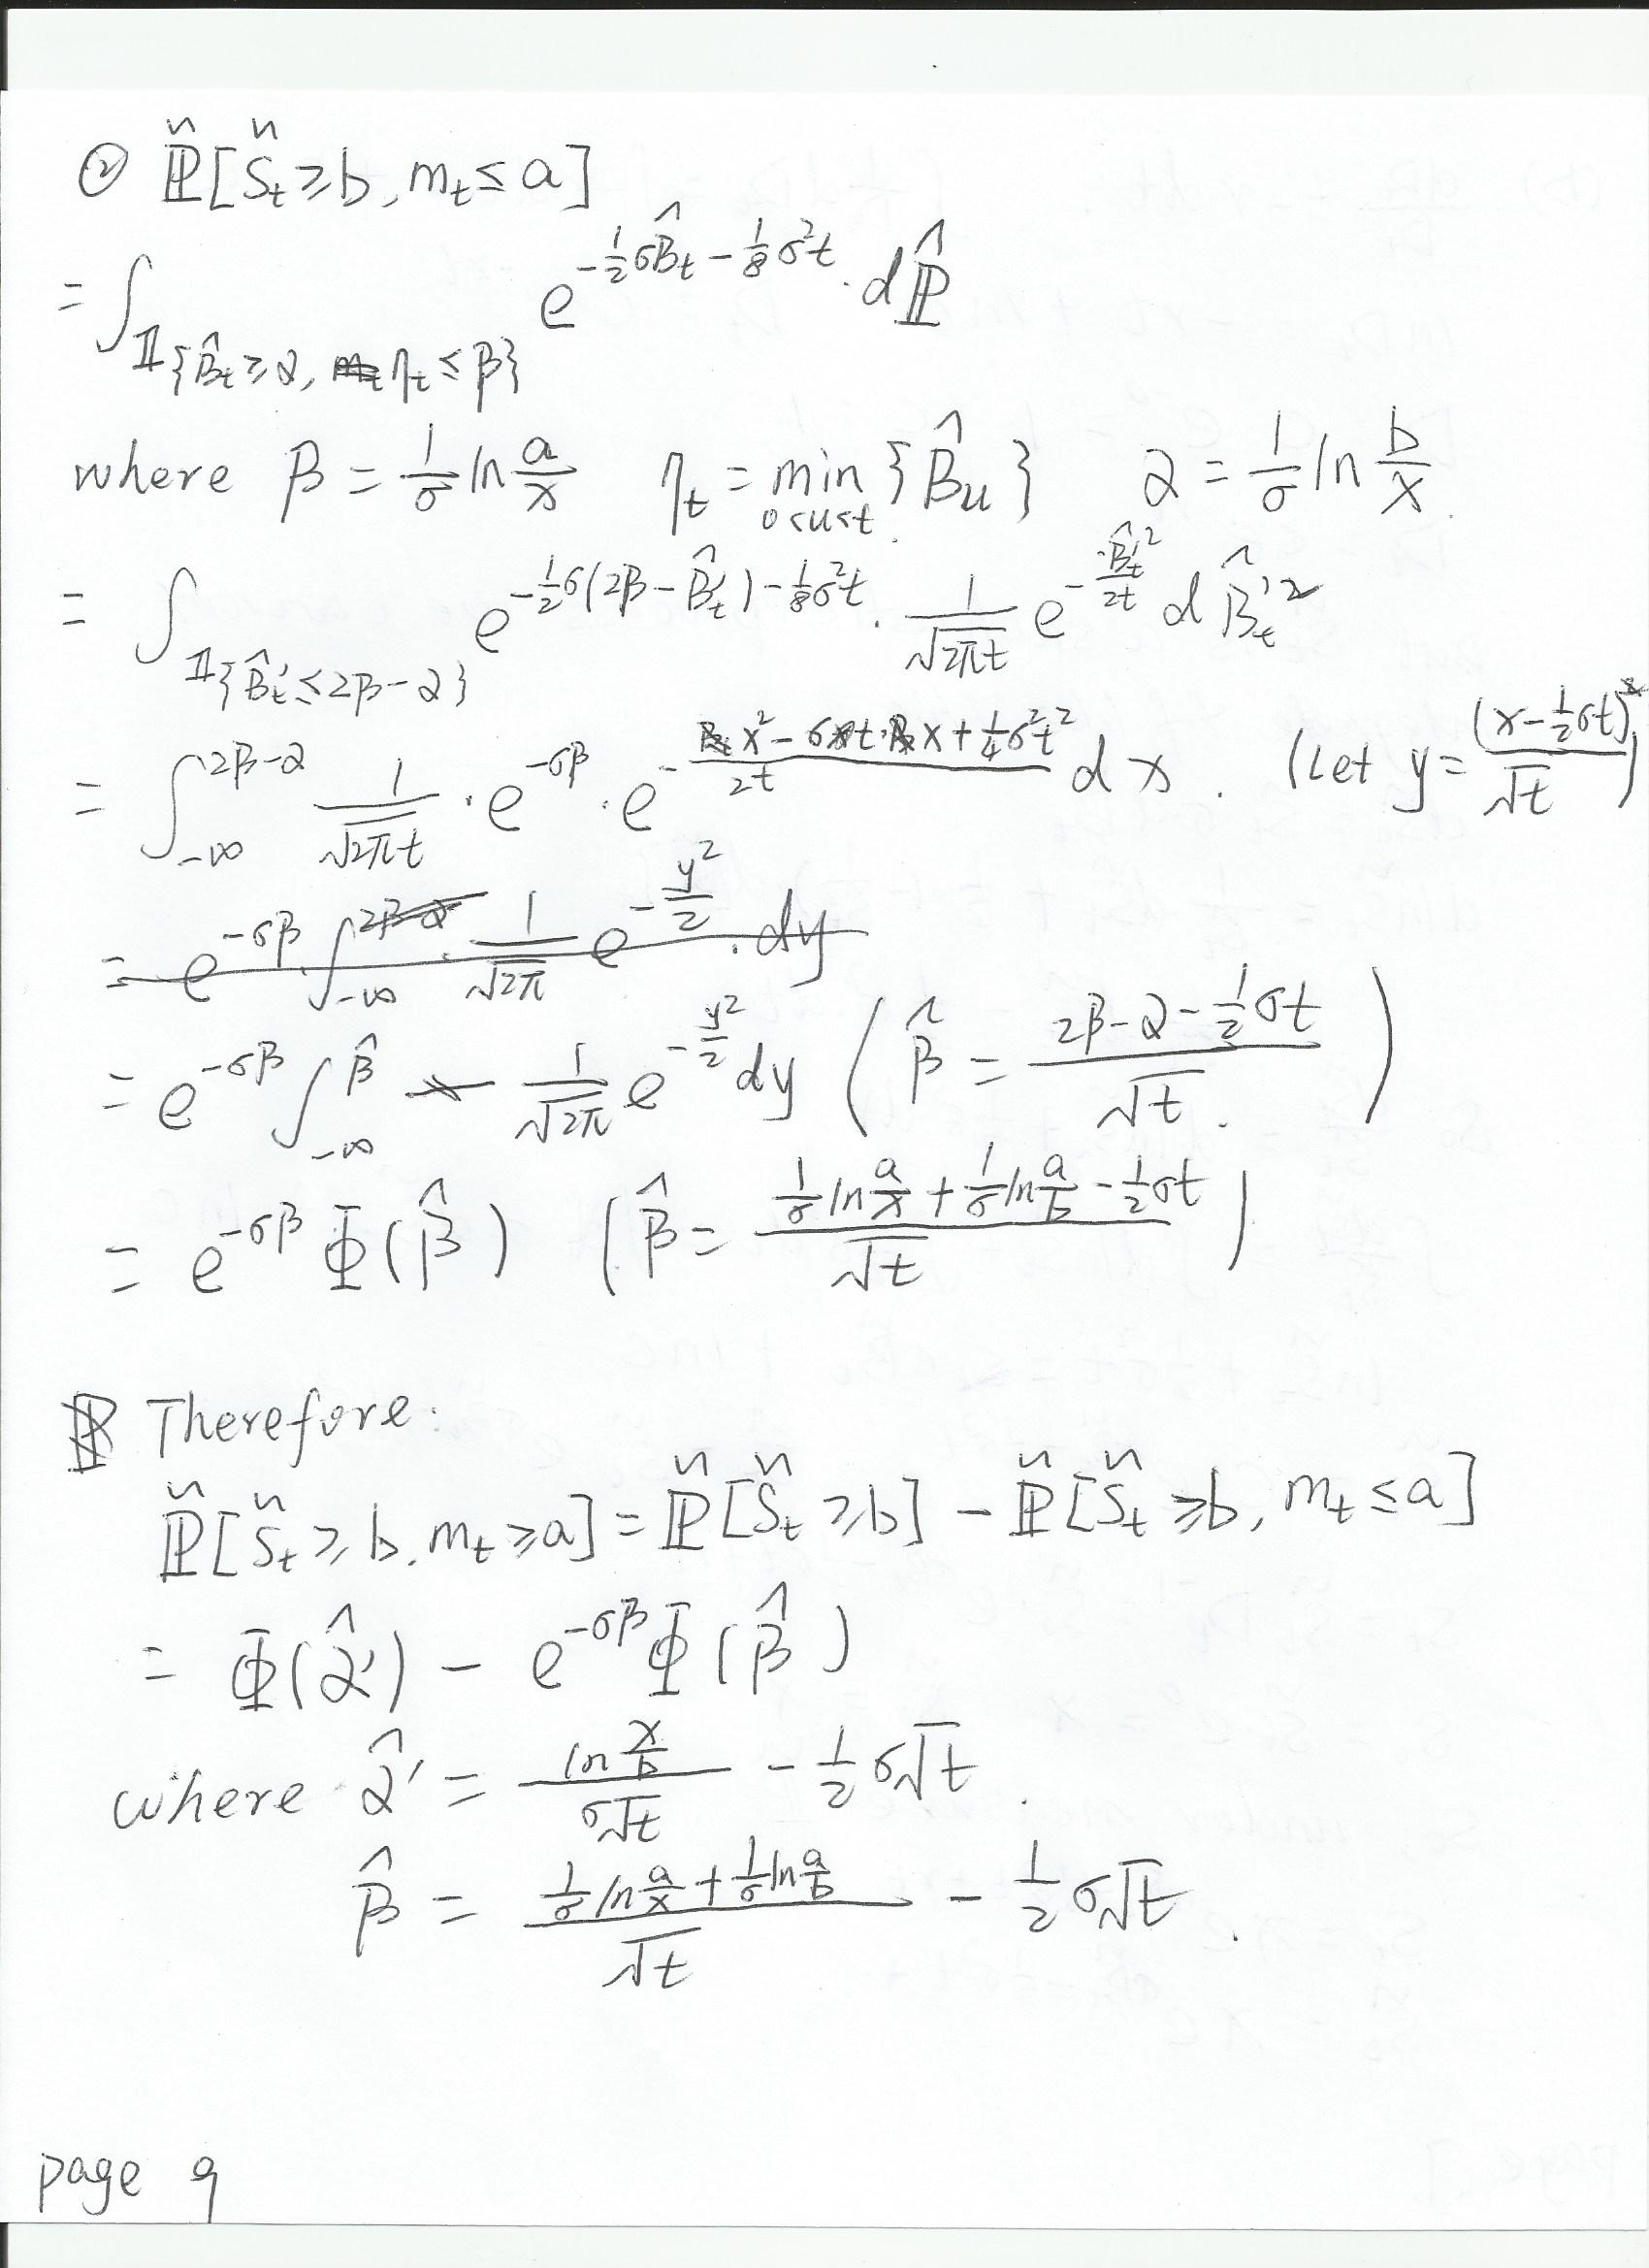 ② P̃[S̃_t ≥ b, m_t ≤ a]
= ∫_{𝟙{B̂_t ≥ α, η_t ≤ β}} e^{-½σB̂_t - ⅛σ²t} · dP̂
where β = 1/σ ln a/x   η_t = min_{0<u<t} {B̂_u}   α = 1/σ ln b/x.
= ∫_{𝟙{B̂'_t ≤ 2β-α}} e^{-½σ(2β - B̂'_t) - ⅛σ²t} · 1/√(2πt) e^{-B̂'_t²/2t} d B̂'_t
= ∫_{-∞}^{2β-α} 1/√(2πt) · e^{-σβ} · e^{-(x² - σt·x + ¼σ²t²)/2t} dx. (Let y = (x-½σt)/√t)
= e^{-σβ} ∫_{-∞}^{2β-α} · 1/√(2π) e^{-y²/2} · dy
= e^{-σβ} ∫_{-∞}^{β̂} 1/√(2π) e^{-y²/2} dy (β̂ = (2β-α-½σt)/√t.)
= e^{-σβ} Φ(β̂) (β̂ = (1/σ ln a/x + 1/σ ln a/b - ½σt)/√t)
Therefore.
P̃[S̃_t ≥ b, m_t ≥ a] = P̃[S̃_t ≥ b] - P̃[S̃_t ≥ b, m_t ≤ a]
= Φ(α̂') - e^{-σβ} Φ(β̂)
where α̂' = (ln x/b)/(σ√t) - ½σ√t.
β̂ = (1/σ ln a/x + 1/σ ln a/b)/√t - ½σ√t.
page 9